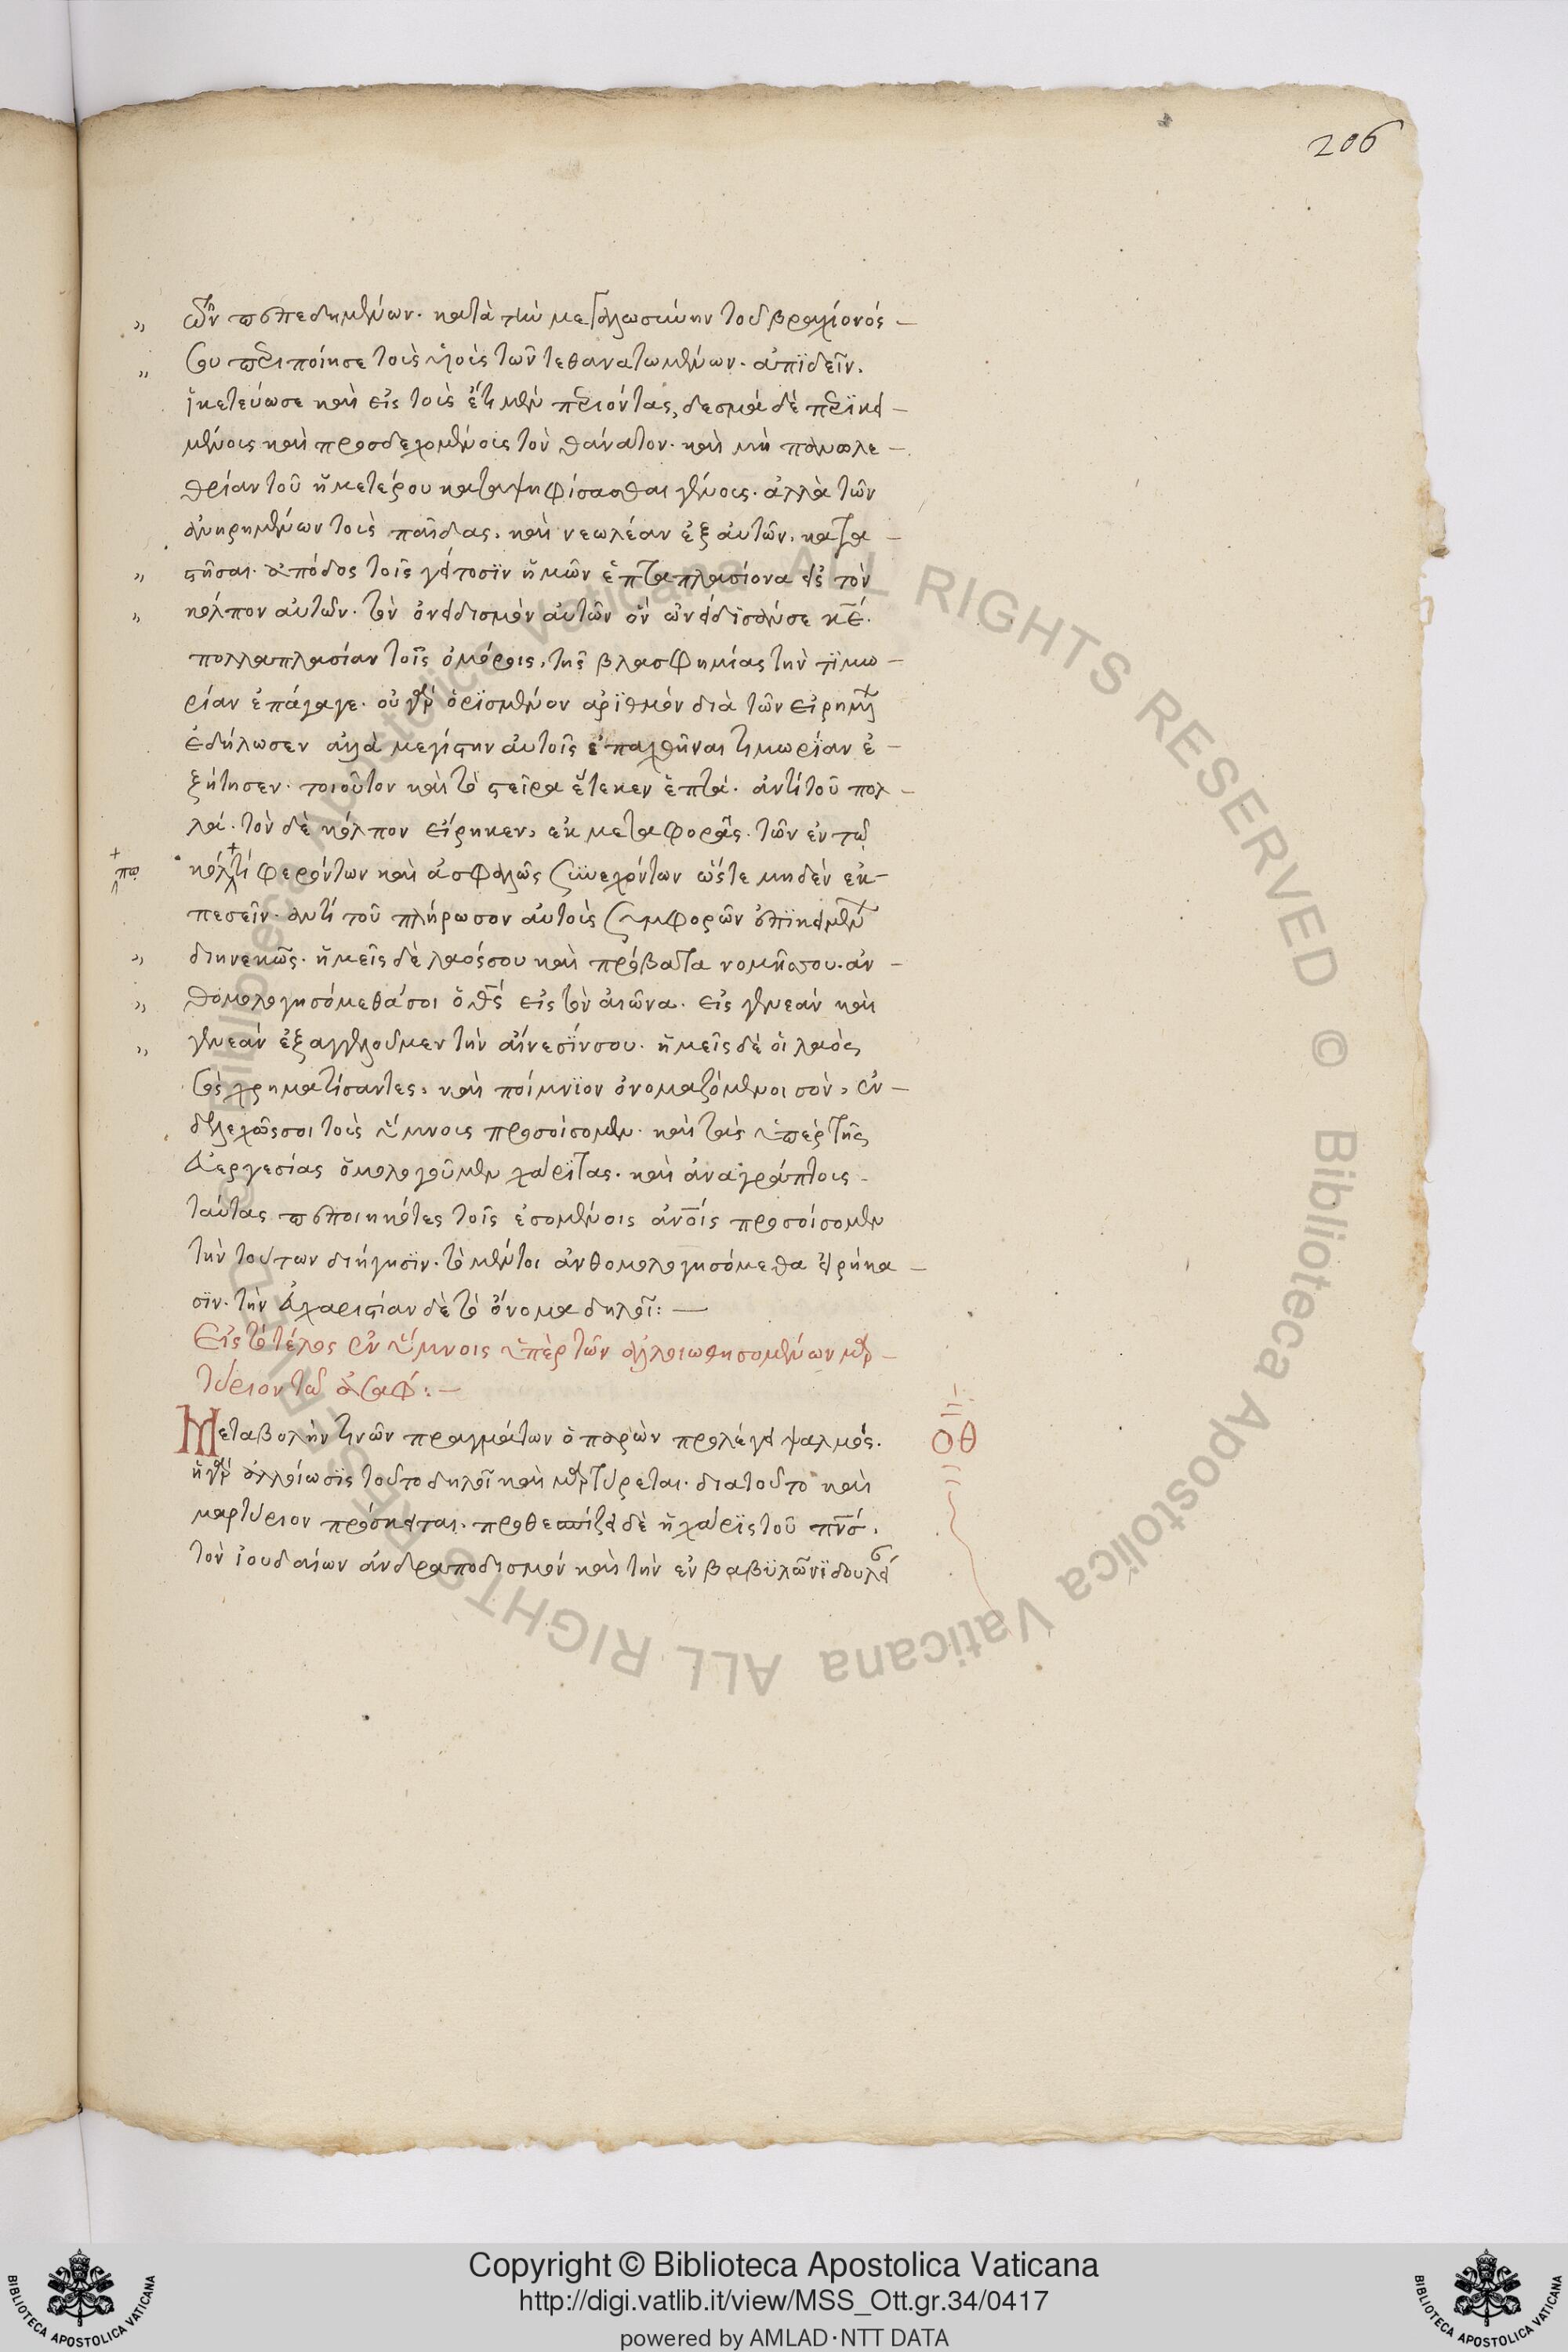 206
τῶν πεπεδημένων. κατὰ τὴν μεγαλωσύνην τοῦ βραχίονός –
σου περιποίησε τοὺς υἱοὺς τῶν τεθανατωμένων. ἀπϊδεῖν.
ἱκετεύωσε καὶ εἰς τοὺς ἔτι μὲν περιόντας, δεσμὰ δὲ περϊκει –
μένοις καὶ προσδεχομένοις τὸν θάνατον. καὶ μὴ πανωλε –
θρίαν τοῦ ἡμετέρου καταψηφίσασθαι γένους. ἀλλὰ τῶν
ἀνηρημένων τοὺς παῖδας. καὶ νεωλέαν ἐξ αὐτῶν. κατα –
στῆσαι. ἀπόδος τοῖς γείτοσϊν ἡμῶν ἑπταπλασίονα εἰς τὸν
κόλπον αὐτῶν. τὸν ὀνειδισμὸν αὐτῶν ὃν ὠνείδισάν σε κε.
πολλαπλασίαν τοῖς ὁμόροις, τῆς βλασφημίας τὴν τϊμω –
ρίαν ἐπάγαγε. οὐ γὰρ ὁρϊσμένον ἀρϊθμὸν διὰ τῶν εἰρημέν
ἐδήλωσεν ἀλλὰ μεγίστην αὐτοῖς ἐπαχθῆναι τιμωρϊαν ἐ –
ξήτησεν. τοιοῦτον καὶ τὸ στεῖρα ἔτεκεν ἑπτά. ἀντὶ τοῦ πολ –
λά. τὸν δὲ κόλπον εἴρηκεν, ἐκ μεταφορᾶς. τῶν ἐν τῷ
πω κόλ τί φερόντων καὶ ἀσφαλῶς συνεχόντων ὥστε μηδὲν ἐκ –
πεσεῖν. ἀντὶ τοῦ πλήρωσον αὐτοὺς συμφορῶν ἐπϊκειμέν
διηνεκῶς. ἡμεῖς δὲ λαός σου καὶ πρόβατα νομῆς σου. ἀν –
θομολογησόμεθά σοι ὁ θς εἰς τὸν αἰῶνα. εἰς γενεὰν καὶ
γενεὰν ἐξαγγελοῦμεν τὴν αἴνεσϊν σου. ἡμεῖς δὲ οἱ λαὸς
σὸς χρηματίσαντες. καὶ ποίμνϊον ὀνομαζόμενοι σὸν, ἐν –
δελεχῶς σοι τοὺς ὕμνους προσοίσομεν. καὶ τὰς ὑπὲρ τῆς
εὐεργεσίας ὁμολογοῦμεν χάρϊτας. καὶ ἀναγράπτους –
ταύτας πεποιηκότες τοῖς ἐσομένοις ἀνοις προσοίσομεν
τὴν τούτων διήγησϊν. τὸ μέντοι ἀνθομολογησόμεθα εἰρήκα –
σϊν. τὴν εὐχαριστίαν δὲ τὸ ὄνομα δηλοῖ: —
Εἰς τὸ τέλος ἐν ὕμνοις ὑπὲρ τῶν ἀλλοιωθησομένων μαρ –
τύριον τῷ ἀσάφ: –
Μεταβολὴν τινῶν πραγμάτων ὁ παρὼν προλέγει ψαλμός. ΟΘ
ἡ γὰρ ἀλλοίωσϊς τοῦτο δηλοῖ καὶ μαρτύρεται. διατοῦτο καὶ
μαρτύριον πρόσκειται. προθεσπίζει δὲ ἡ χάρϊς τοῦ πνς.
τὸν ἰουδαίων ἀνδραποδισμὸν καὶ τὴν ἐν βαβϋλῶνϊ δουλεί
Copyright © Biblioteca Apostolica Vaticana
http://digi.vatlib.it/view/MSS_Ott.gr.34/0417
powered by AMLAD·NTT DATA